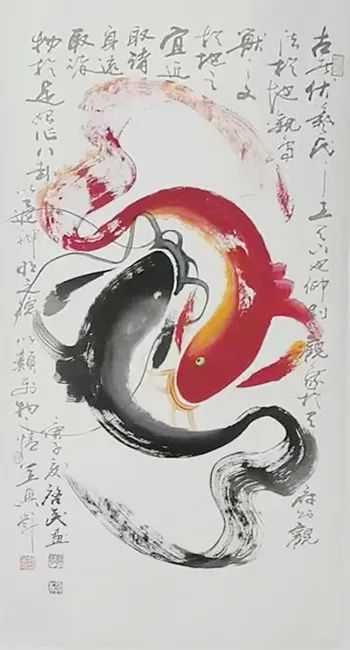 古者伏羲氏之王天下也仰则觀象於天俯則觀
法於地觀鳥
獸之文
於地之
宜近
取諸
身遠
取諸
物於是始作八卦以通神明之德以類萬物之情王
庚子夏啓民画